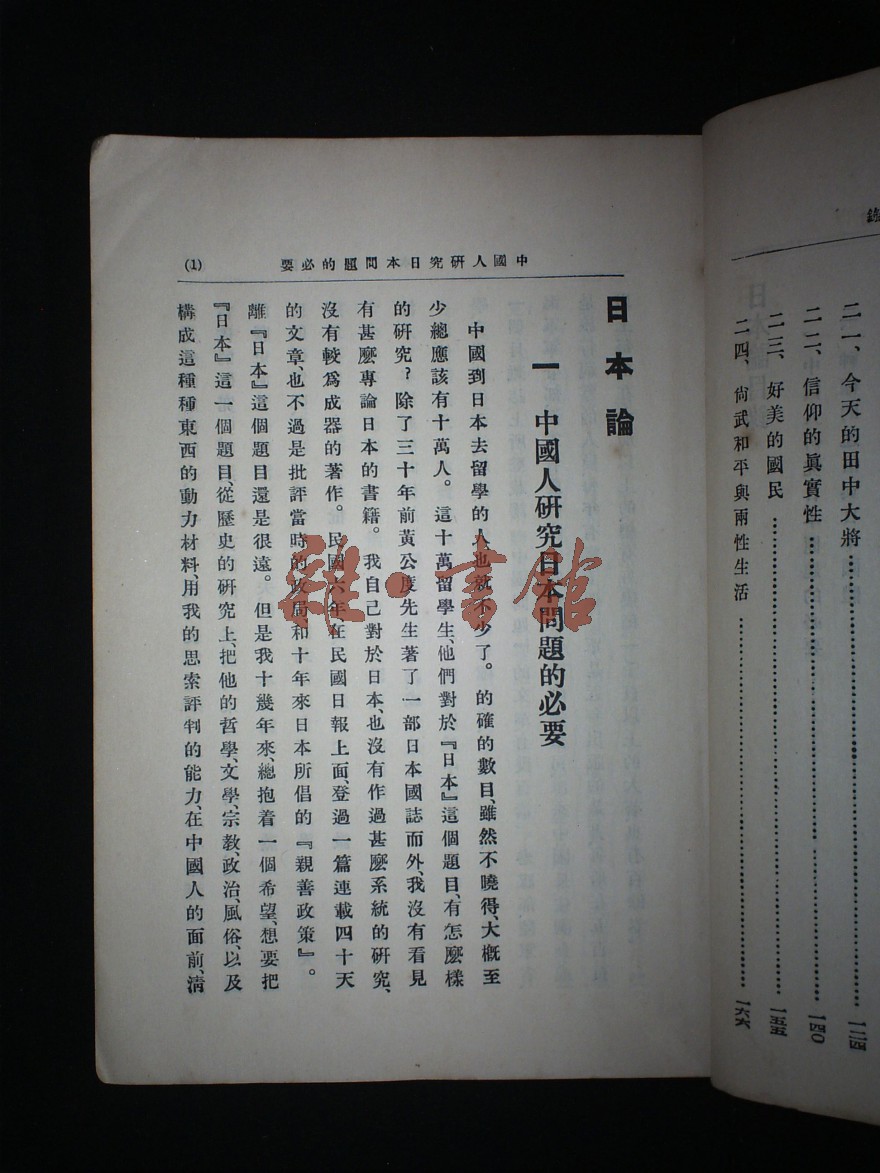 錄
二一、今天的田中大將……………………一二四
二二、信仰的眞實性……………………一四〇
二三、好美的國民……………………一五五
二四、尙武和平與兩性生活……………………一六六
中國人研究日本問題的必要
(1)
日本論
一　中國人研究日本問題的必要
中國到日本去留學的人、也就不少了。的確的數目、雖然不曉得、大概至
少總應該有十萬人。這十萬留學生、他們對於『日本』這個題目、有怎麼樣
的研究？除了三十年前黃公度先生著了一部日本國誌而外、我沒有看見
有甚麼專論日本的書籍。我自己對於日本、也沒有作過甚麼系統的研究、
沒有較爲成器的著作。民國六年、在民國日報上面、登過一篇連載四十天
的文章、也不過是批評當時的政局、和十年來日本所倡的『親善政策』。
離『日本』這個題目還是很遠。但是我十幾年來、總抱着一個希望、想要把
『日本』這一個題目、從歷史的研究上、把他的哲學、文學、宗教、政治、風俗、以及
構成這種種東西的動力材料、用我的思索評判的能力、在中國人的面前、清
雜·書館